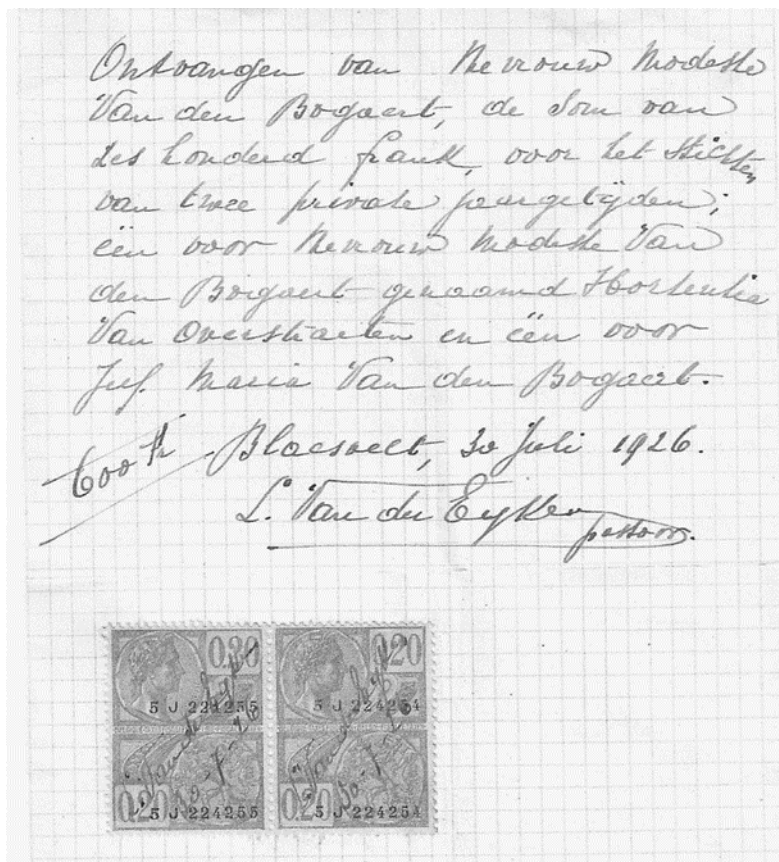 Ontvangen van Mevrouw Modeste
Van den Bogaert, de som van
zes honderd frank, voor het stichten
van twee private jaargetijden;
één voor Mevrouw Modeste Van
den Bogaert genaamd Hortentia
Van Overstraeten en één voor
Juf. Maria Van den Bogaert.
600 fr Blaesvelt, 30 Juli 1926.
L. Van der Eycken
pastoor.
0.20 0.20
5 J 224255 5 J 224254
L. Van der Eyc L. Van der Eyc
30-7-26 30-7-26
0.20 5 J 224255 0.20 5 J 224254